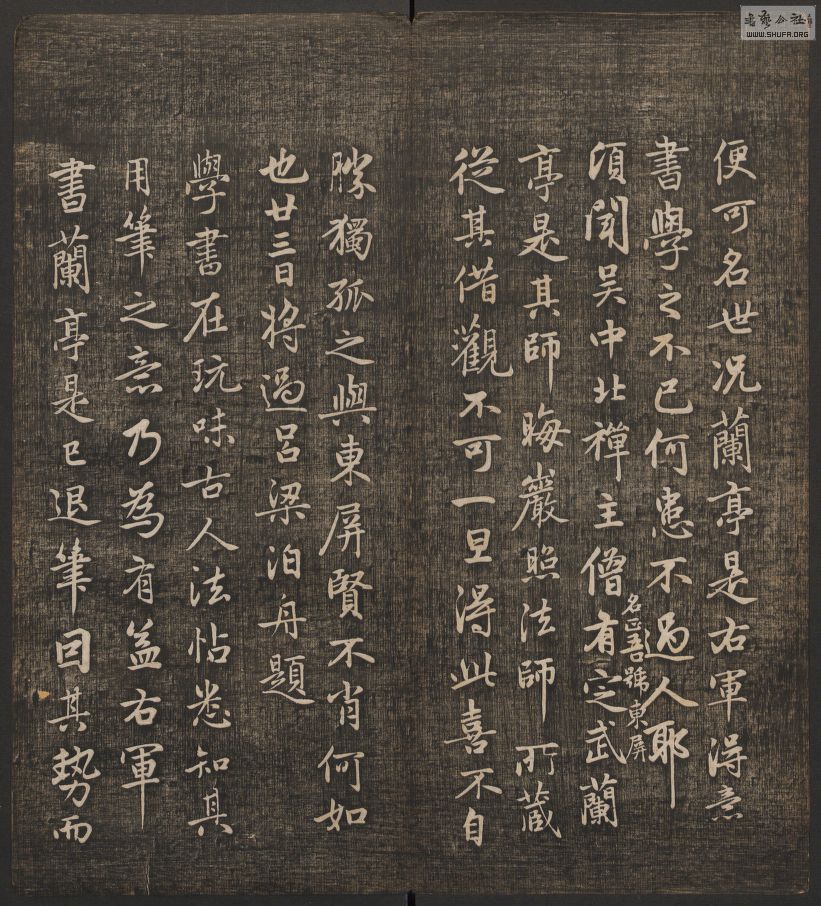 便可名世况蘭亭是右軍得意
書學之不已何患不過人耶
頃聞吴中北禪主僧有定武蘭
名正吾號東屏
亭是其師晦巖照法師所藏
從其借觀不可一旦得此喜不自
勝獨孤之與東屏賢不肖何如
也廿三日將過呂梁泊舟題
學書在玩味古人法帖悉知其
用筆之意乃為有益右軍
書蘭亭是已退筆因其勢而
書藝公社
WWW.SHUFA.ORG